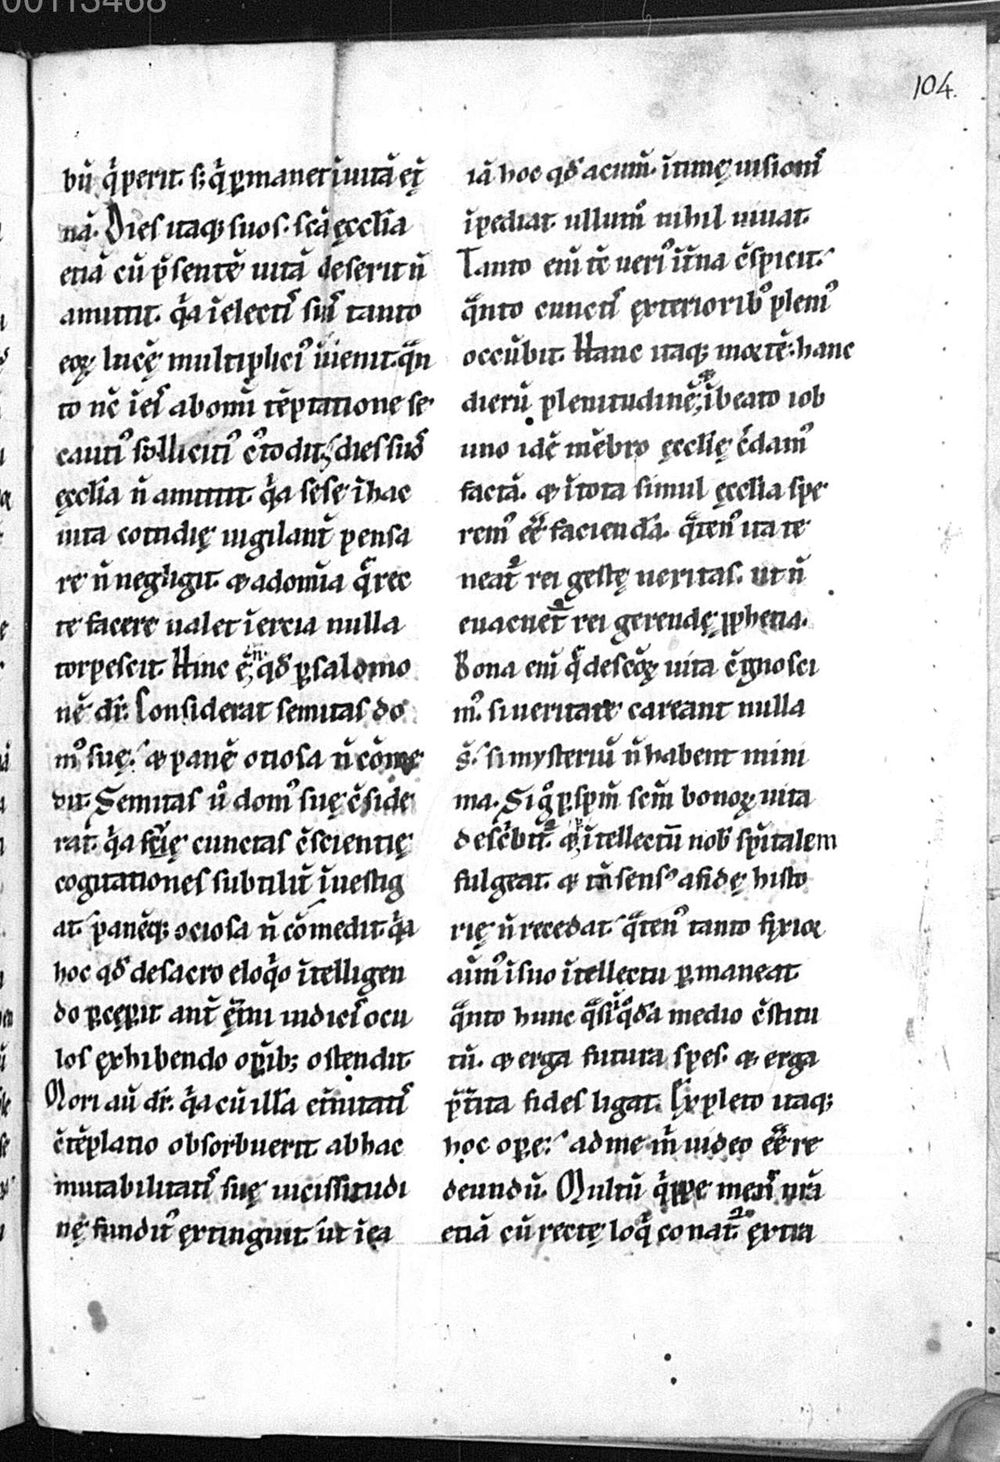 00113468
104.
bū q̇ perit. s; q̇ ꝑmanet ī uitā et̄
nā. Dies itaq; suos. sc̄a ęccl̄ia
etiā cū p̄sentē uitā deserit n̄
amittit. q̇a ī electis suis tanto
eoꝝ lucē multiplici᾿ īuenit. q̄n
to nc̄ ī eis ab om̄i tēptatione se
cauti᾿ sollicita᾿ c᾿todit. dies suos
ęccl̄ia n̄ amittit q̇a sese ī hac
uita cottidię uigilant̄ pensa
re n̄ negligit. & ad om̄ia q̄ rec
te facere ualet īercia nulla
torpescit. Hinc ē n̄ qđ ꝑ salomo
nē dr̄. Considerat semitas do
m᾿ suę. & panē otiosa n̄ cōme
dit. Semitas u̇ dom᾿ suę c̄side
rat. q̇a suę cunctas c̄scientię
cogitationes subtilit̄ īuestig
at. panēq; ociosa n̄ cōmedit. q̇a
hoc qđ de sacro eloq̇o ītelligen
do ꝑcępit ant̄ ęt̄ni iudicis ocu
los exhibendo oꝑib; ostendit
Mori aū dr̄. q̇a cū illā et̄nitatis
c̄tēplatio absorbuerit ab hac
mutabilitatis suę uicissitudi
nę fundit᾿ extinguit. ut ī ea
iā hoc qđ acumī. ītimę uisionis
īpediat. ullum nihil uiuat.
Tanto eni tē ueri᾿ īt̄na c̄spicit.
q̄nto cunctis exteriorib᾿ pleni᾿
occūbit. Hanc itaq; mortē. hanc
dierū plenitudinē, & ī beato iob
uno idē mēbro ęccl̄ię c̄dam᾿
factā. & ī tota simul ęccl̄ia spe
rem᾿ eē faciendā. q̄ten᾿ ita te
neat̄ rei gestę ueritas. ut n̄
euacuet̄ rei gerendę ꝓphetia.
Bona eni q̄ de sc̄oꝝ uita c̄gnosci
m᾿. si ueritate careant nulla
s̄. si mysteriū n̄ habent mini
ma. Sig᾿ ꝑ sp̄m sc̄m bonoꝝ uita
desc̄bit̄. & ītellectū nob̄ sp̄italem
fulgeat. & tn̄ sens᾿ a fidę histo
rię n̄ recedat. q̄ten᾿ tanto fixior
anim᾿ ī suo ītellectu ꝑmaneat
q̄nto hunc q̄si ī q̇dā medio c̄stitu
tū. & erga futura spes. & erga
p̄t̄ita fides ligat. Expleto itaq;
hoc oꝑe. ad me m̄ uideo eē re
deundū. Multū q̇ppe mens nr̄a
etiā cū rectę loq̇ conat̄ extra